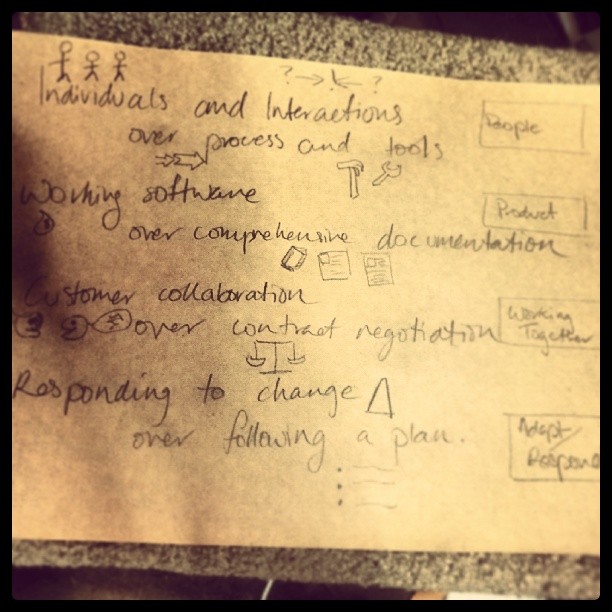 ? → ← ?
Individuals and Interactions
People
over process and tools
Working software
Product
over comprehensive documentation
Customer collaboration
Working
Together
over contract negotiation
Responding to change
over following a plan.
Adapt/
Respond